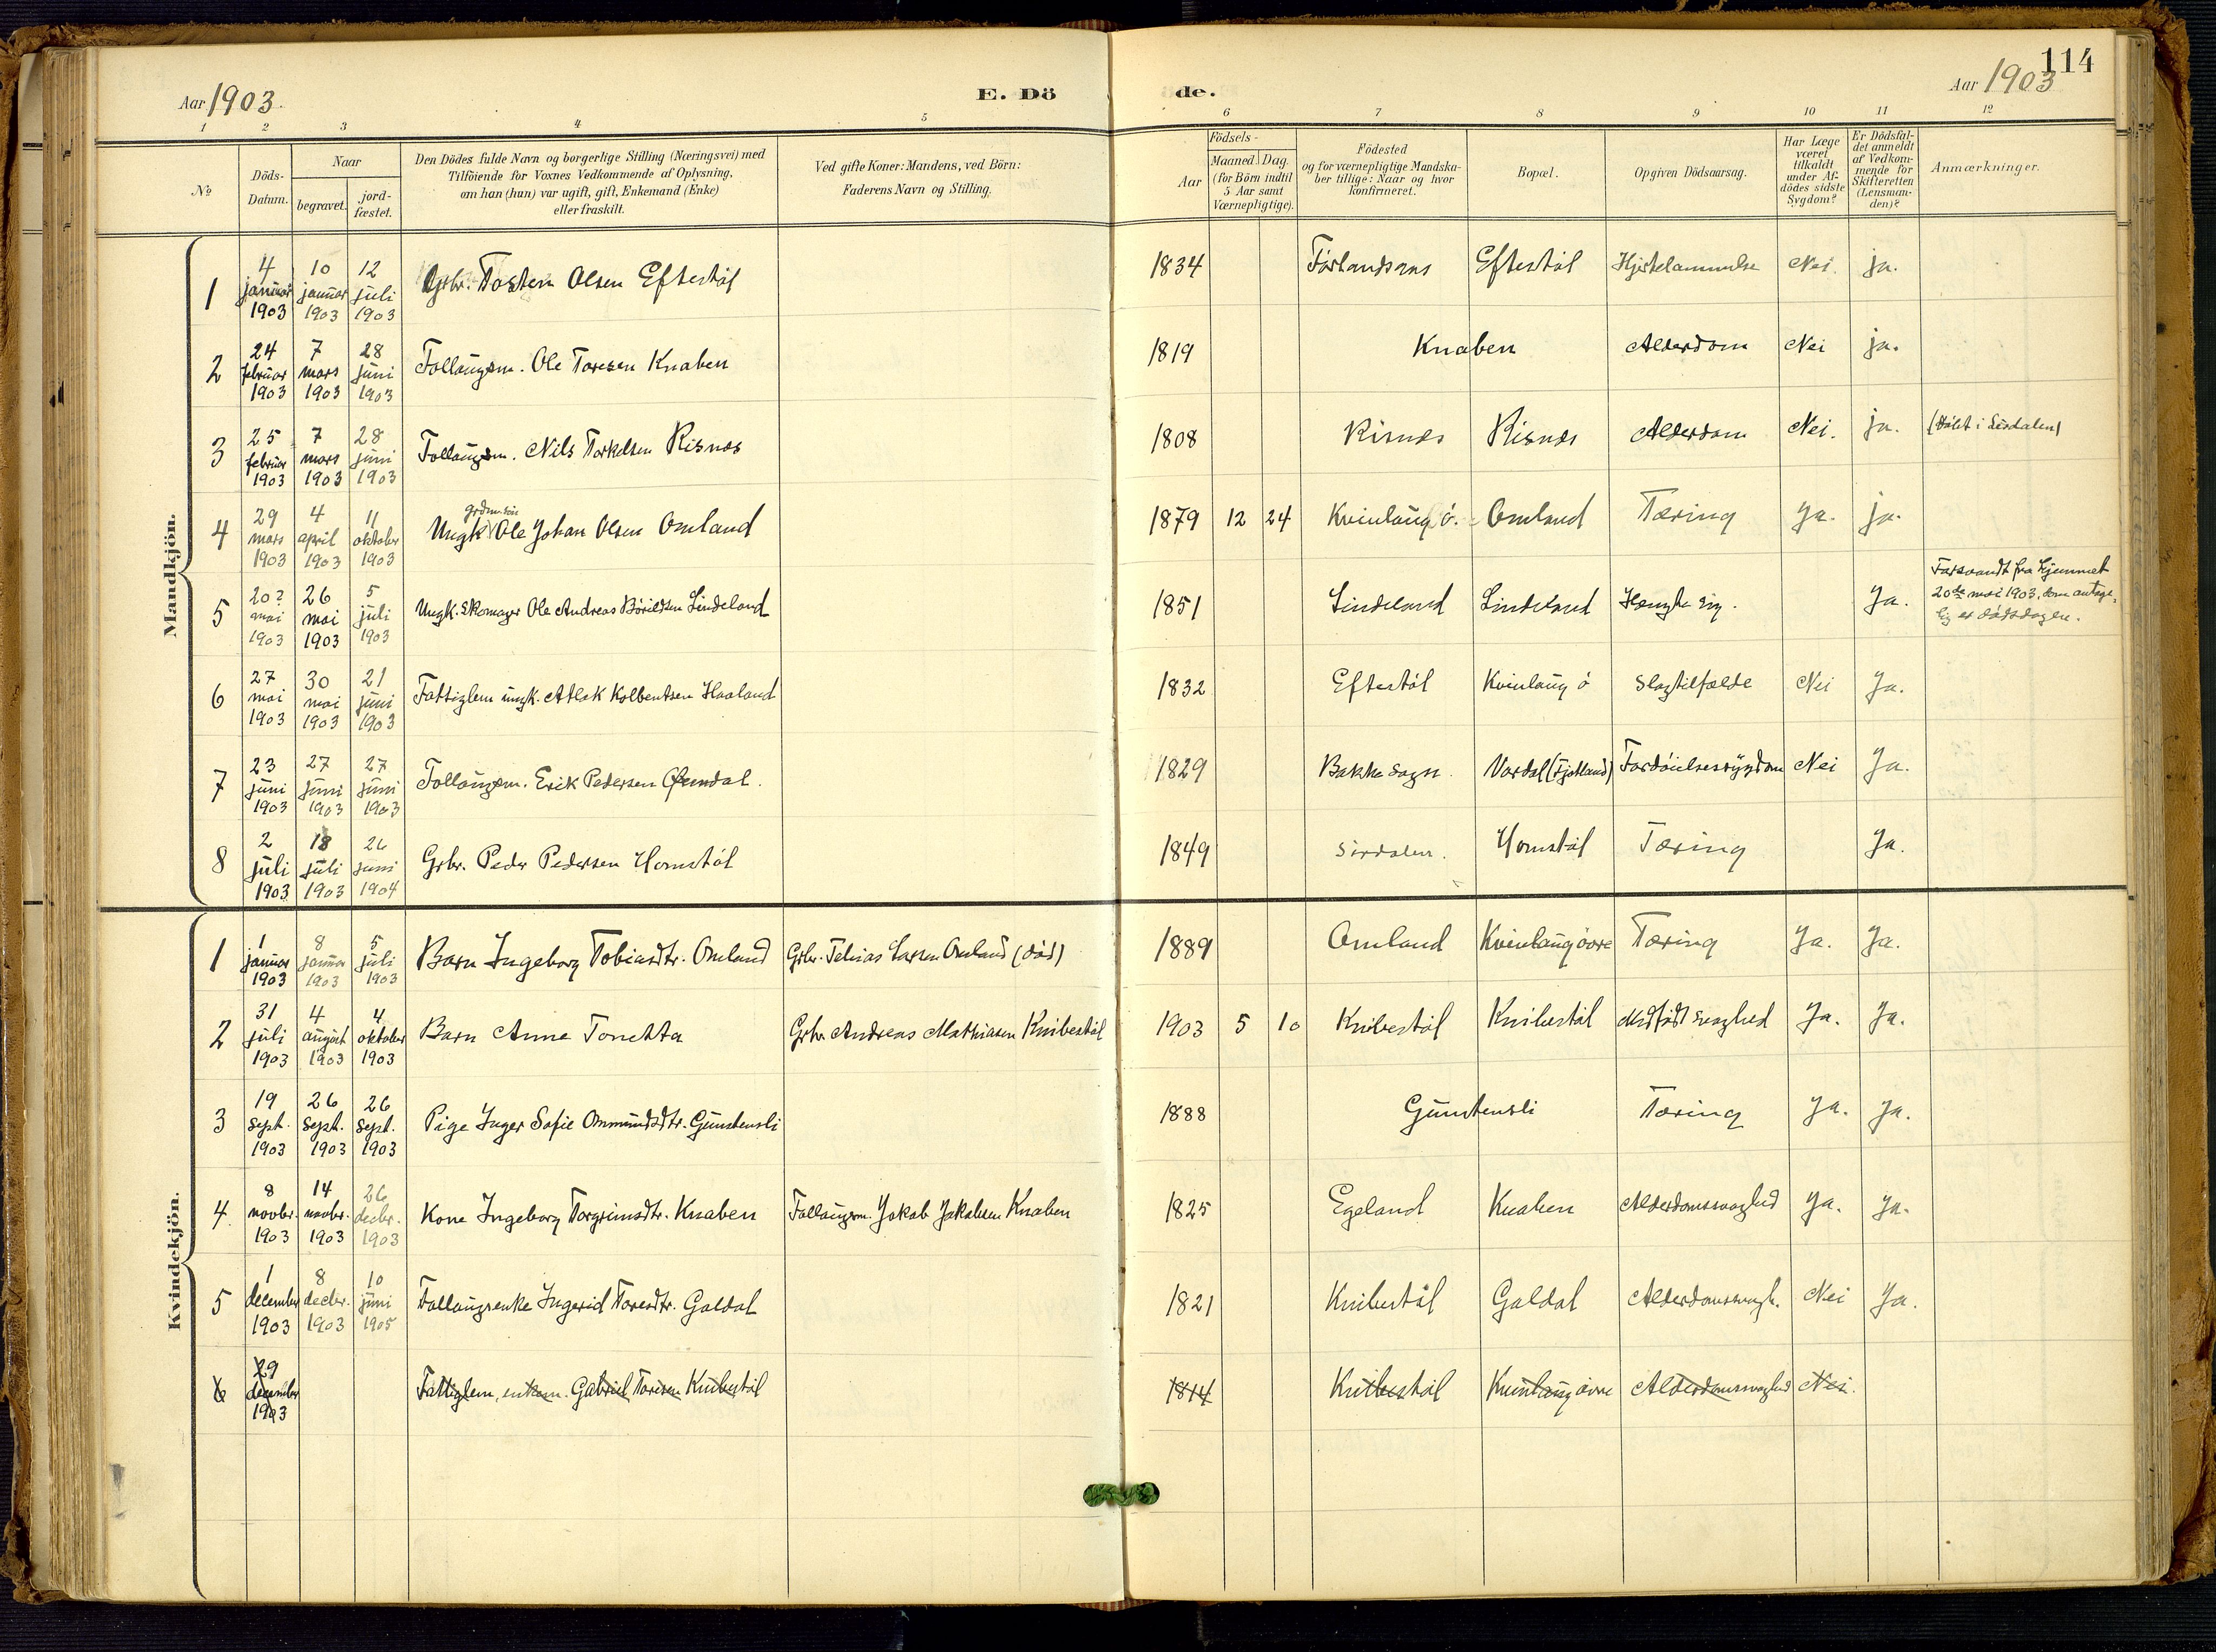 Aar 1903.
E. Dö
de.
Aar 1903
114
1 2 3 4 5 6 7 8 9 10 11 12
No
Döds-Datum.
Naar
begravet.
jord-fæstet.
Den Dödes fulde Navn og borgerlige Stilling (Næringsvei) med
Tilföiende for Voxnes Vedkommende af Oplysning,
om han (hun) var ugift, gift, Enkemand (Enke)
eller fraskilt.
Ved gifte Koner: Mandens, ved Börn:
Faderens Navn og Stilling.
Födsels-
Aar
Maaned. Dag.
(for Börn indtil
5 Aar samt
Værnepligtige).
Födested
og for værnepligtige Mandska-
ber tillige: Naar og hvor
konfirmeret.
Bopæl.
Opgiven Dödsaarsag.
Har Læge
været
tilkaldt
under Af-
dödes sidste
Sygdom?
Er Dödsfal-
det anmeldt
af Vedkom-
mende for
Skifteretten
(Lensman-
den)?
Anmærkninger.
Mandkjön.
1 4 januar 1903 10 januar 1903 12 juli 1903 Grbr. Tosten Olsen Eftestöl 1834 Eftestöl Nei. ja.
2 24 februar 1903 7 mars 1903 28 juni 1903 Follaugsm. Ole Toresen Knaben 1819 Knaben Alderdom Nei ja.
3 25 februar 1903 7 mars 1903 28 juni 1903 Follaugsm. Nils Torkelsen Risnes 1808 Risnes Risnes Alderdom Nei. ja. (Död i Sirdalen)
4 29 mars 1903 4 april 1903 11 oktober 1903 Ungk. grdm.sön Ole Johan Olsen Omland 1879 12 24 Kvinlaug ö. Omland Tæring Ja. ja.
5 20? mai 1903 26 mai 1903 5 juli 1903 Ungk. Skomager Ole Andreas Börildsen Lindeland 1851 Lindeland Lindeland Hængte sig. Ja. Forsvandt fra hjemmet
20de mai 1903, som antage-
lig er dödsdagen.
6 27 mai 1903 30 mai 1903 21 juni 1903 Fattiglem ungk. Atlak Kolbentsen Haaland 1832 Eftestöl Kvinlaug ö Slagtilfælde Nei Ja.
7 23 juni 1903 27 juni 1903 27 juni 1903 Follaugsm. Erik Pedersen 1829 Bakke Sogn. (Fjotland) Fordöielsessygdom Nei Ja.
8 2 juli 1903 18 juli 1903 26 juni 1904 Grbr. Peder Pedersen Homstöl 1849 Sirdalen. Homstöl Tæring Ja.
Kvindekjön.
1 1 januar 1903 8 januar 1903 5 juli 1903 Barn Ingeborg Tobiasdtr. Omland Grbr. Tobias Larsen Omland (död) 1889 Omland Kvinlaug övre Tæring Ja. Ja.
2 31 juli 1903 4 august 1903 4 oktober 1903 Barn Anne Tonetta Grbr. Andreas Mathiasen Knibestöl 1903 5 10 Knibestöl Knibestöl Medfödt svaghed Ja. Ja.
3 19 sept. 1903 26 sept. 1903 26 sept. 1903 Pige Inger Sofie Ommundsdtr. Gunstensli 1888 Gunstensli Tæring Ja. Ja.
4. 8 novbr. 1903 14 novbr. 1903 26 decbr. 1903 Kone Ingeborg Torgrimsdtr. Knaben Follaugsm. Jakob Jakobsen Knaben 1825 Egeland Knaben Alderdomssvaghed Ja. Ja.
5 1 december 1903 8 decbr. 1903 10 juni 1905 Follaugsenke Ingerid Toresdtr. Galdal 1821 Knibestöl Galdal Alderdomssvagh. Nei Ja.
6 29 december 1903 Fattiglem, enkem. Gabriel Toresen Knibestöl 1814 Knibestöl Kvinlaug övre Alderdomssvaghed Nei.